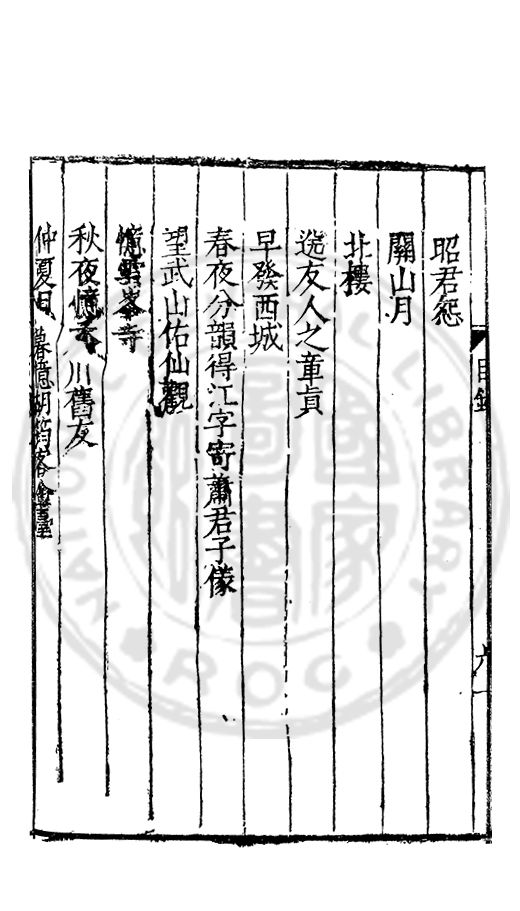 目錄
昭君怨
關山月
北樓
送友人之章貢
早發西城
春夜分韻得江字寄蕭君子儀
望武山佑仙觀
憶雲峯寺
秋夜憶 川舊友
仲夏日暮憶胡筠客金臺